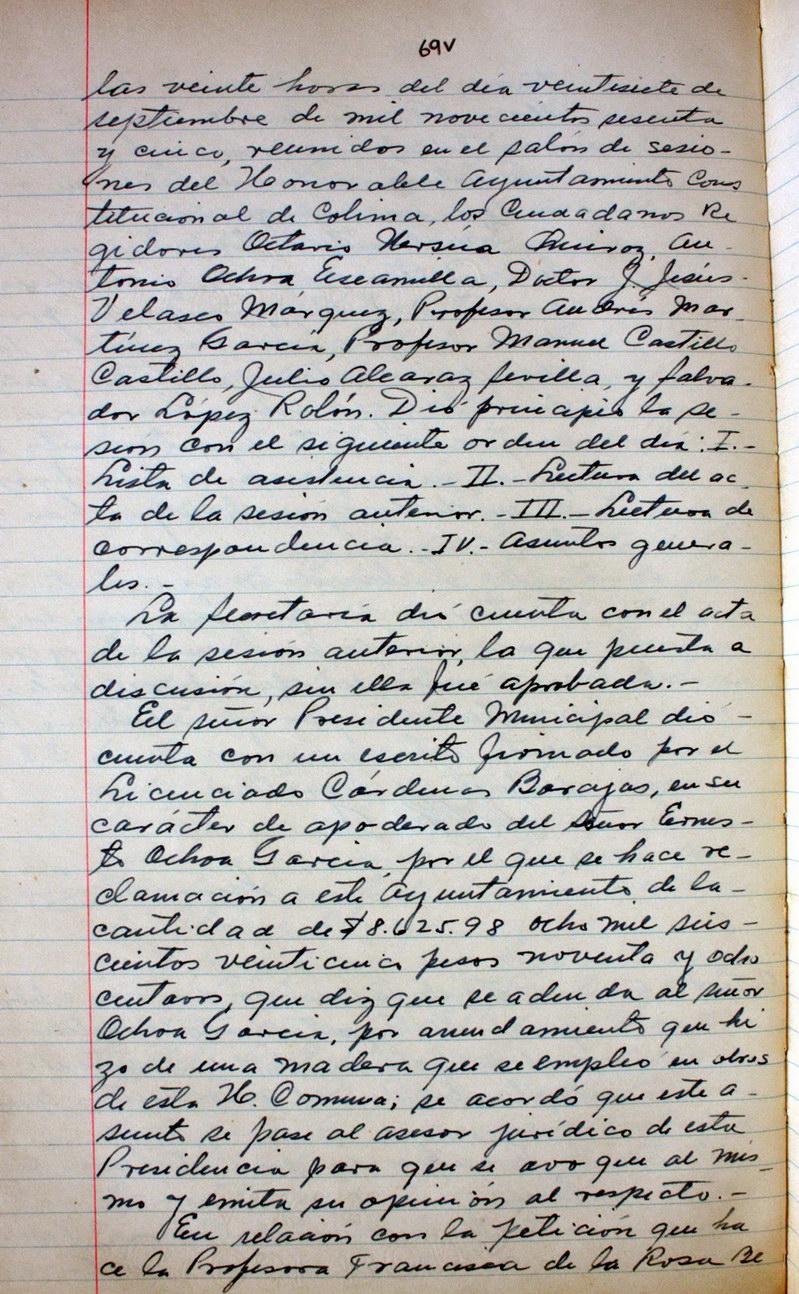 69v
las veinte horas del día veintisiete de
septiembre de mil novecientos sesenta
y cinco, reunidos en el salón de sesio-
nes del Honorable Ayuntamiento Cons
titucional de Colima, los Ciudadanos Re
gidores Octavio Quiroz, An-
tonio Ochoa Escamilla, Doctor J. Jesús-
Velasco Márquez, Profesor Andrés Mar-
tínez García, Profesor Manuel Castillo
Castillo, Julio Alcaraz Sevilla, y Salva-
dor López Rolón. Dió principio la se-
sión con el siguiente orden del día: I.-
Lista de asistencia.- II.- Lectura del ac-
ta de la sesión anterior.- III.- Lectura de
correspondencia.- IV.- Asuntos genera-
les.-
La Secretaría dió cuenta con el acta
de la sesión anterior, la que puesta a
discusión, sin ella fué aprobada.-
El señor Presidente Municipal dió-
cuenta con un escrito firmado por el
Licenciado Cárdenas Barajas, en su
carácter de apoderado del señor Ernes-
to Ochoa García, por el que se hace re-
clamación a este Ayuntamiento de la-
cantidad de $8.625.98 ocho mil seis-
cientos veinticinco pesos noventa y ocho
centavos, que diz que se adeuda al señor
Ochoa García, por arrendamiento que hi
zo de una madera que se empleó en obras
de esta H. Comuna; se acordó que este a-
sunto se pase al asesor jurídico de esta
Presidencia para que se avoque al mis-
mo y emita su opinión al respecto.-
En relación con la petición que ha
ce la Profesora Francisca de la Rosa Be